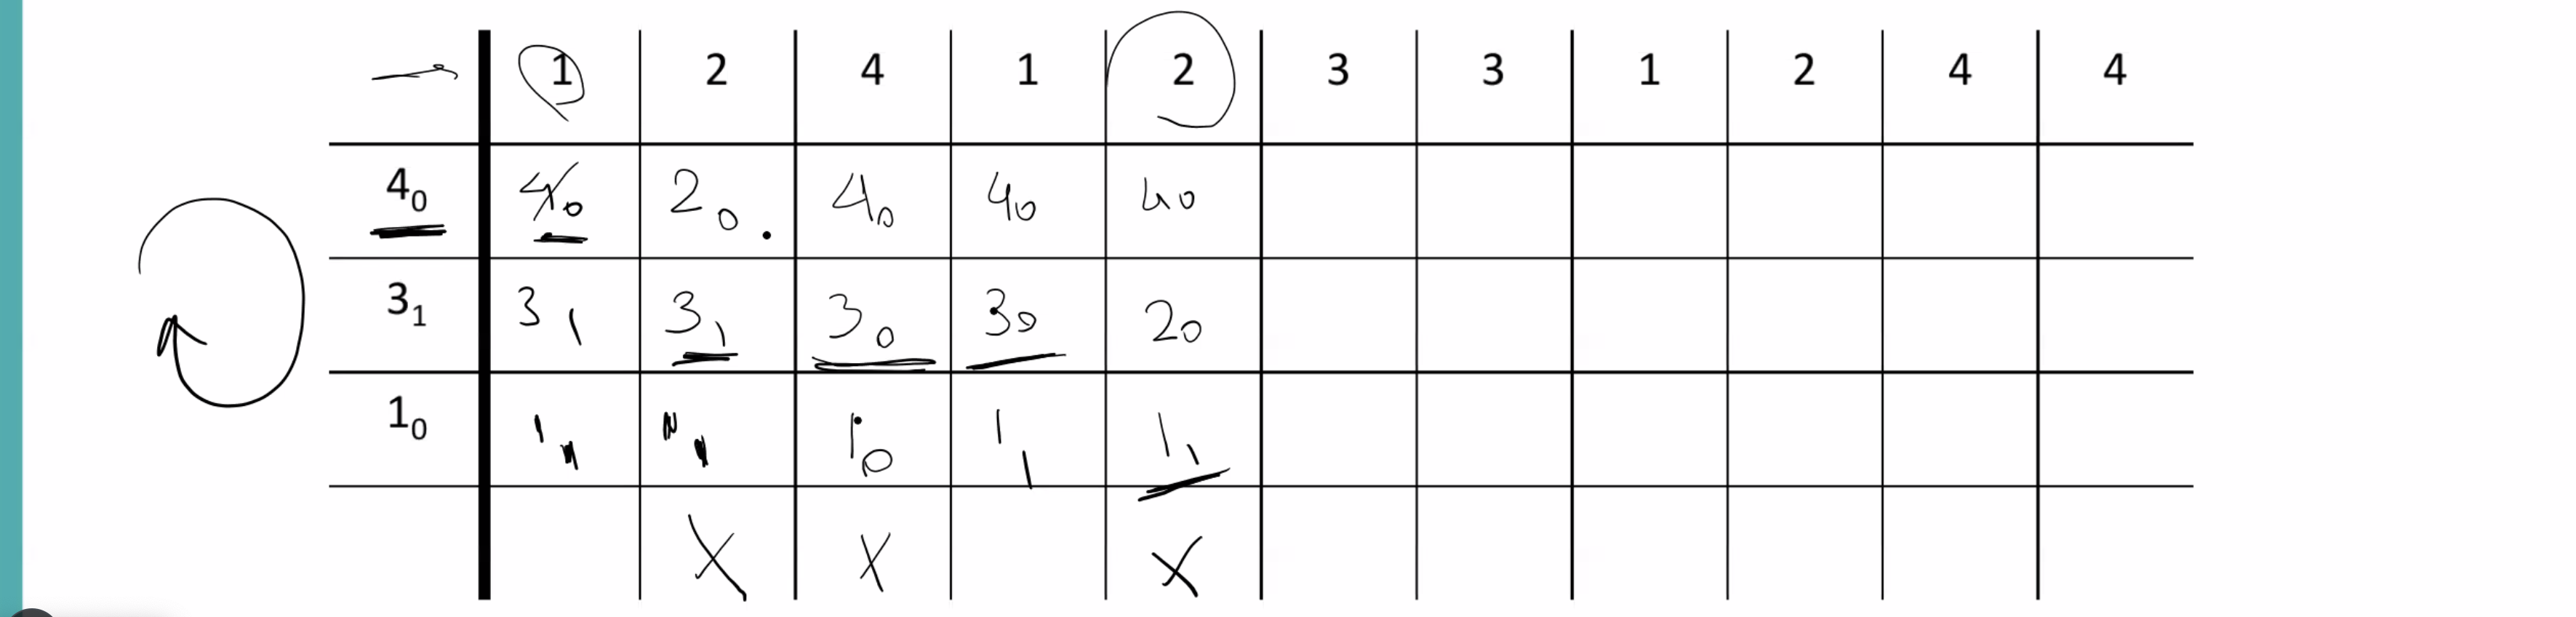 1 2 4 1 2 3 3 1 2 4 4
4₀ 4₀ 2₀. 4₀ 4₀ 4₀
3₁ 3₁ 3₁ 3₀ 3₀ 2₀
1₀ 1₁ 1₁ 1₀ 1₁ 1₁
X X X